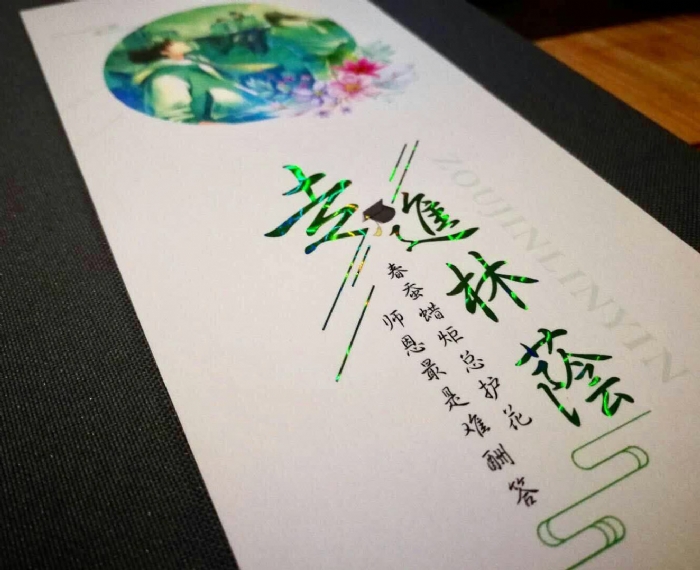 走進林蔭
ZOUJINLINYIN
春蚕蜡炬总护花
师恩最是难酬答